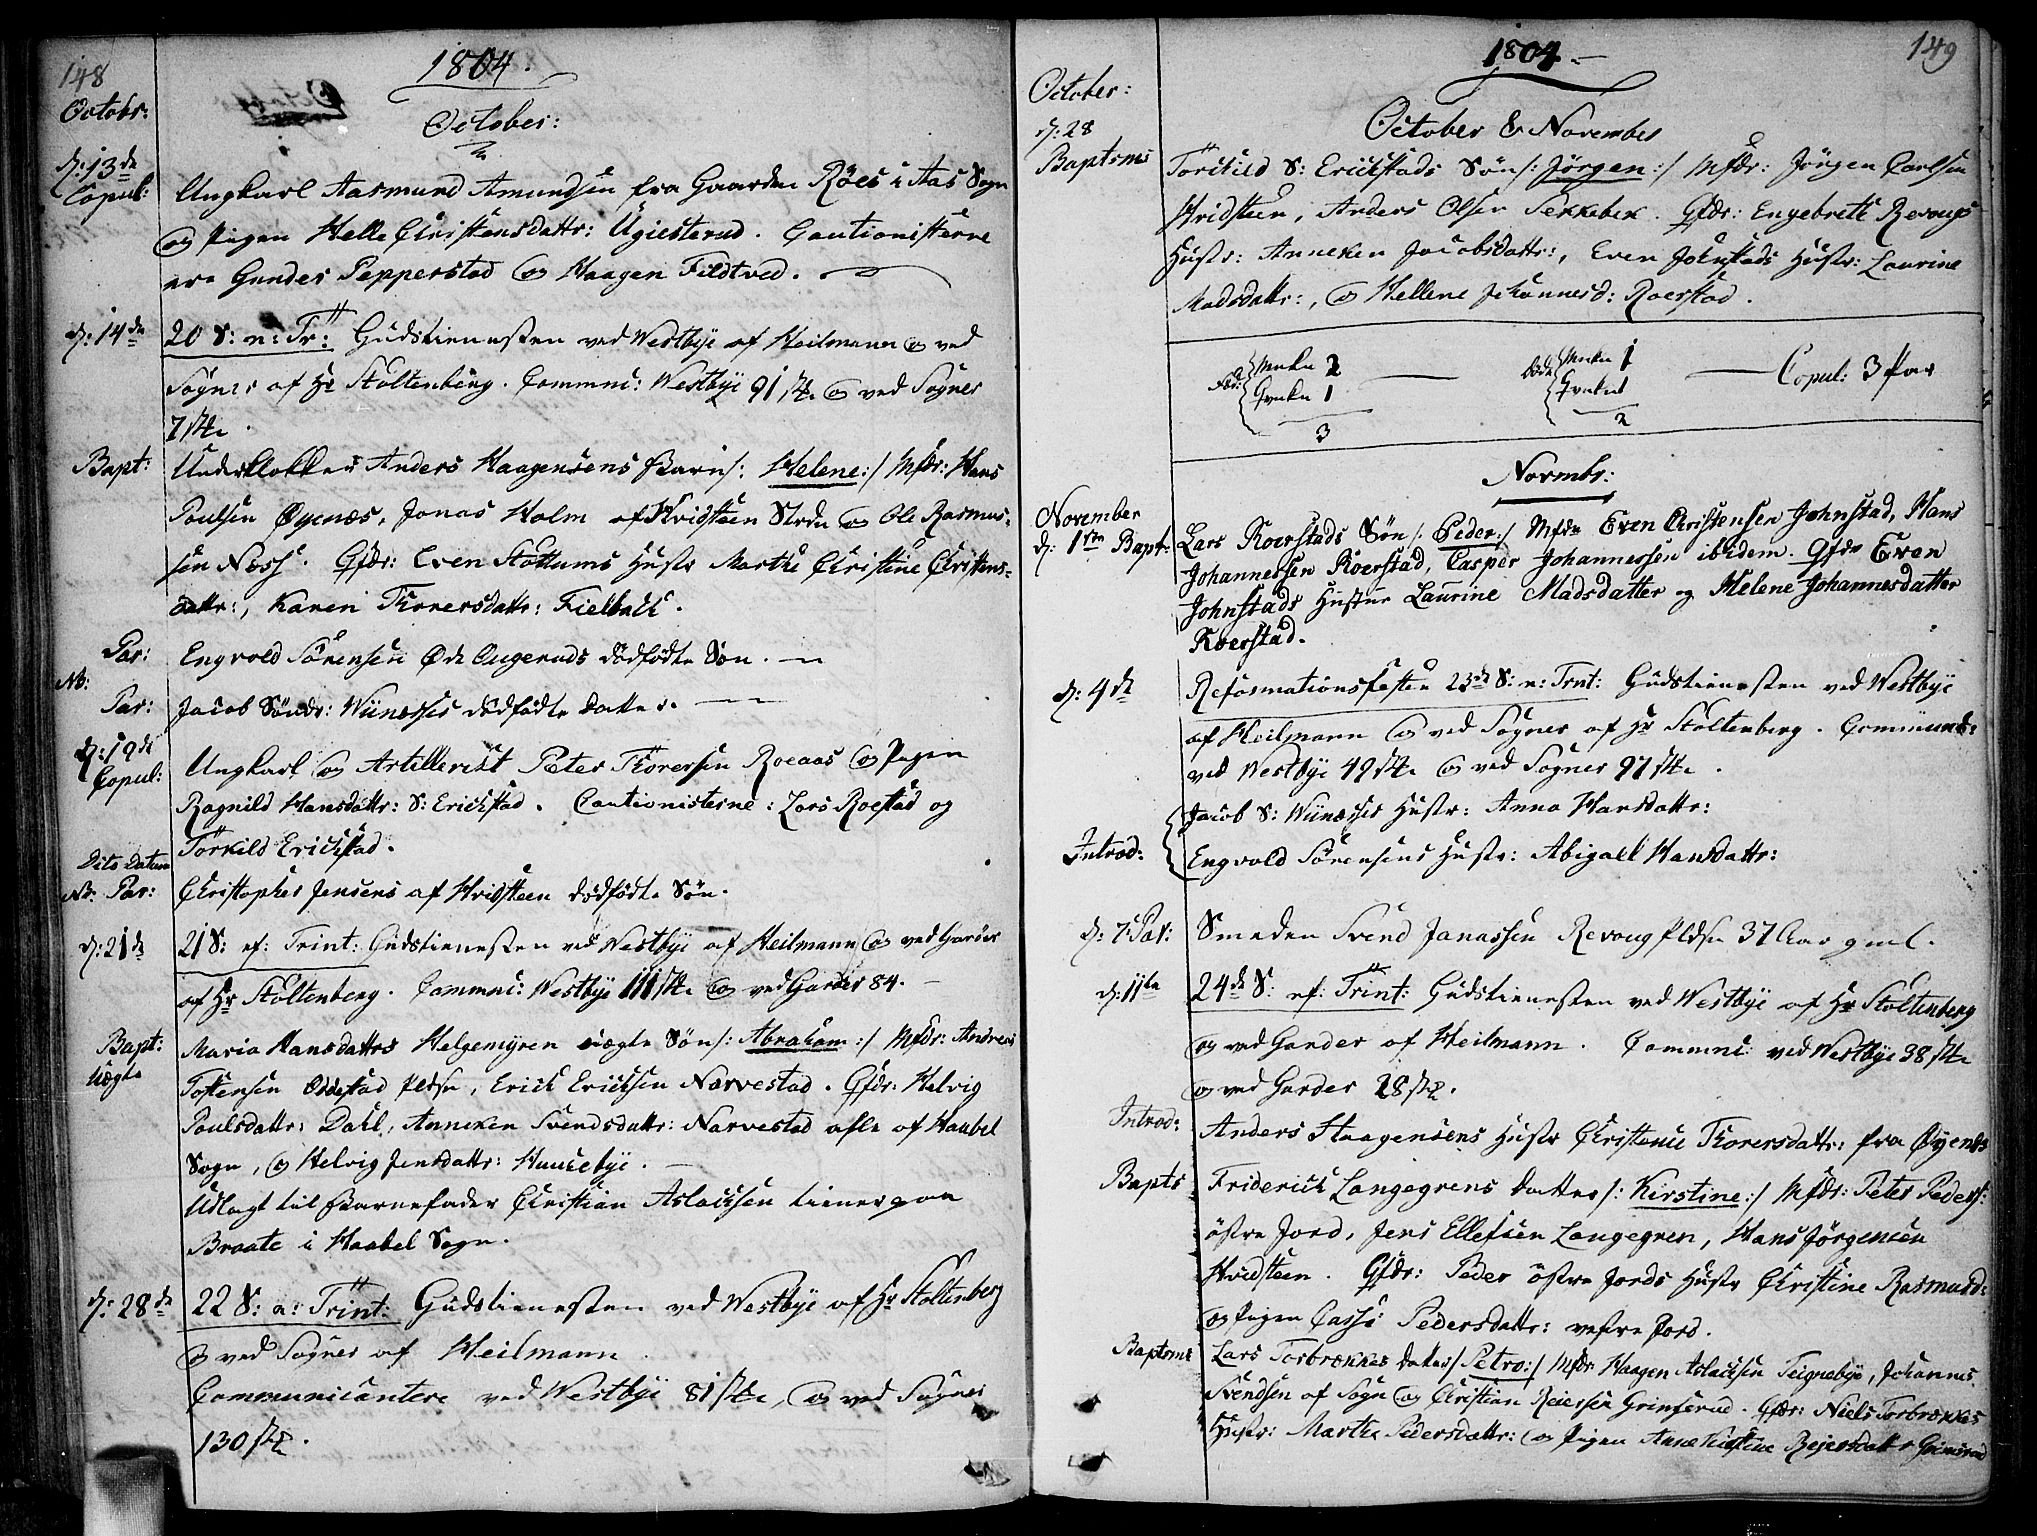 148
1804.
Octobr:
October:
d: 13de
Copul:
Ungkarl Aasmund Amundsen fra Gaarden Röes i Aas Sogn
og Pigen Helle Christensdattr: Ugiesterud. Cautionisterne
ere Gunder Pepperstad og Haagen Fildtved.
d: 14de
20 S: n: Tr: Gudstienesten ved Westbye af Heilmann og ved
Sogner af Hr Stoltenberg. Commnc: Westbye 91 stk og ved Sogner
7 stk.
Bapt:
Underklokker Anders Haagensens Barn /: Helene :/ Mfdr: Hans
Poulsen Øyenæs, Jonas Holm af Hvidsteen Strdn og Ole Rasmus-
sen Ness. Qfdr: Even Stottums Hustr Marthe Christine Christens-
dattr:, Karen Thorersdattr: Fielbach.
Par:
Engvold Sörensen Øde Augeruds dödfödte Sön.
No:
Par:
Jacob Sönd: Wiinesses dödfödte Datter.
d: 19de
Copul:
Ungkarl og Artillerist Peter Thorersen Roeaas og Pigen
Ragnild Hansdattr: S: Erichstad. Cautionisterne: Lars Roestad og
Torkild Erichstad.
Dito Datum
No. Par:
Christopher Jensens af Hvidsteen dödfödte Sön.
d: 21de
21 S: ef: Trint: Gudstienesten ved Westbye af Heilmann og ved Garder
af Hr Stoltenberg. Commnc: Westbye 111 stk og ved Garder 84.
Bapt:
uægte
Maria Hansdattrs Helgemyren uægte Sön /: Abraham :/ Mfdr: Andreas
Tostensen Oddestad Pldsn, Erich Erichsen Narvestad. Qfdr: Helvig
Poulsdattr: Dahl, Anneken Svendsdattr: Narvestad alle af Haabel
Sogn, og Helvig Jensdattr: Huusebye.
Udlagt til Barnefader Christian Aslachsen tiener paa
Braate i Haabel Sogn.
d: 28de
22 S: n: Trint: Gudstienesten ved Westbye af Hr Stoltenberg
og ved Sogner af Heilmann.
Communicantere ved Westbye 81 stk, og ved Sogner
130 stk.
149
1804.
October:
October & November
d: 28
Baptsms
Torchild S: Erichstads Sön /: Jörgen :/ Mfdr: Jörgen Carlsen
Hvidsteen, Anders Olsen Sekkebek. Qfdr: Engebrett Revougs
Hustr: Anneken Jacobsdattr:, Even Johnstads Hustr: Laurine
Madsdattr:, og Hellene Johannesd: Roerstad.
Föd: Mnkn 2 Qvnkn 1 3 — döde Mnkn 1 Qvnkn 1 2 — Copul: 3 Par
Novmbr:
November
d: 1ste Bapt:
Lars Roerstads Sön /: Peder :/ Mfdr Even Christensen Johnstad, Hans
Johannessen Roerstad, Casper Johannessen ibidem. Qfdr Even
Johnstads Hustrue Laurine Madsdatter og Helene Johannesdatter
Roerstad.
d: 4de
Reformationsfesten 23de S: n: Trnt: Gudstienesten ved Westbye
af Heilmann og ved Sogner af Hr Stoltenberg. Communc:
ved Westbye 49 stk og ved Sogner 97 stk.
Introd:
Jacob S: Wiinesses Hustr: Anna Hansdattr:
Engvold Sörensens Hustr: Abigaell Hansdattr:
d: 7 Par:
Smeden Svend Janassen Revoug Pldsn 37 Aar gml.
d: 11te
24de S: ef: Trint: Gudstienesten ved Westbye af Hr Stoltenberg
og ved Garder af Heilmann. Commnc: ved Westbye 38 stk
og ved Garder 28 stk.
Introd:
Anders Haagensens Hustr Christence Thorersdattr: fra Øyenes
Bapts
Friderich Langegrens Datter /: Kirstine :/ Mfdr: Peter Peders:
östre Jord, Jens Ellefsen Langegren, Hans Jörgensen
Hvidsteen. Qfdr: Peder östre Jords Hustr Christine Rasmusd:
og Pigen Casse Pedersdattr: vestre Jord.
Baptsms
Lars Torbrækkes Datter /: Petra :/ Mfdr Haagen Aslachsen Teignebye, Johannes
Svendsen af Sogn og Christian Reiersen Grimserud. Qfdr: Niels Torbrækkes
Hustr: Marthe Pedersdattr: og Pigen Anne Kirstine Rejersdattr Grimsrud